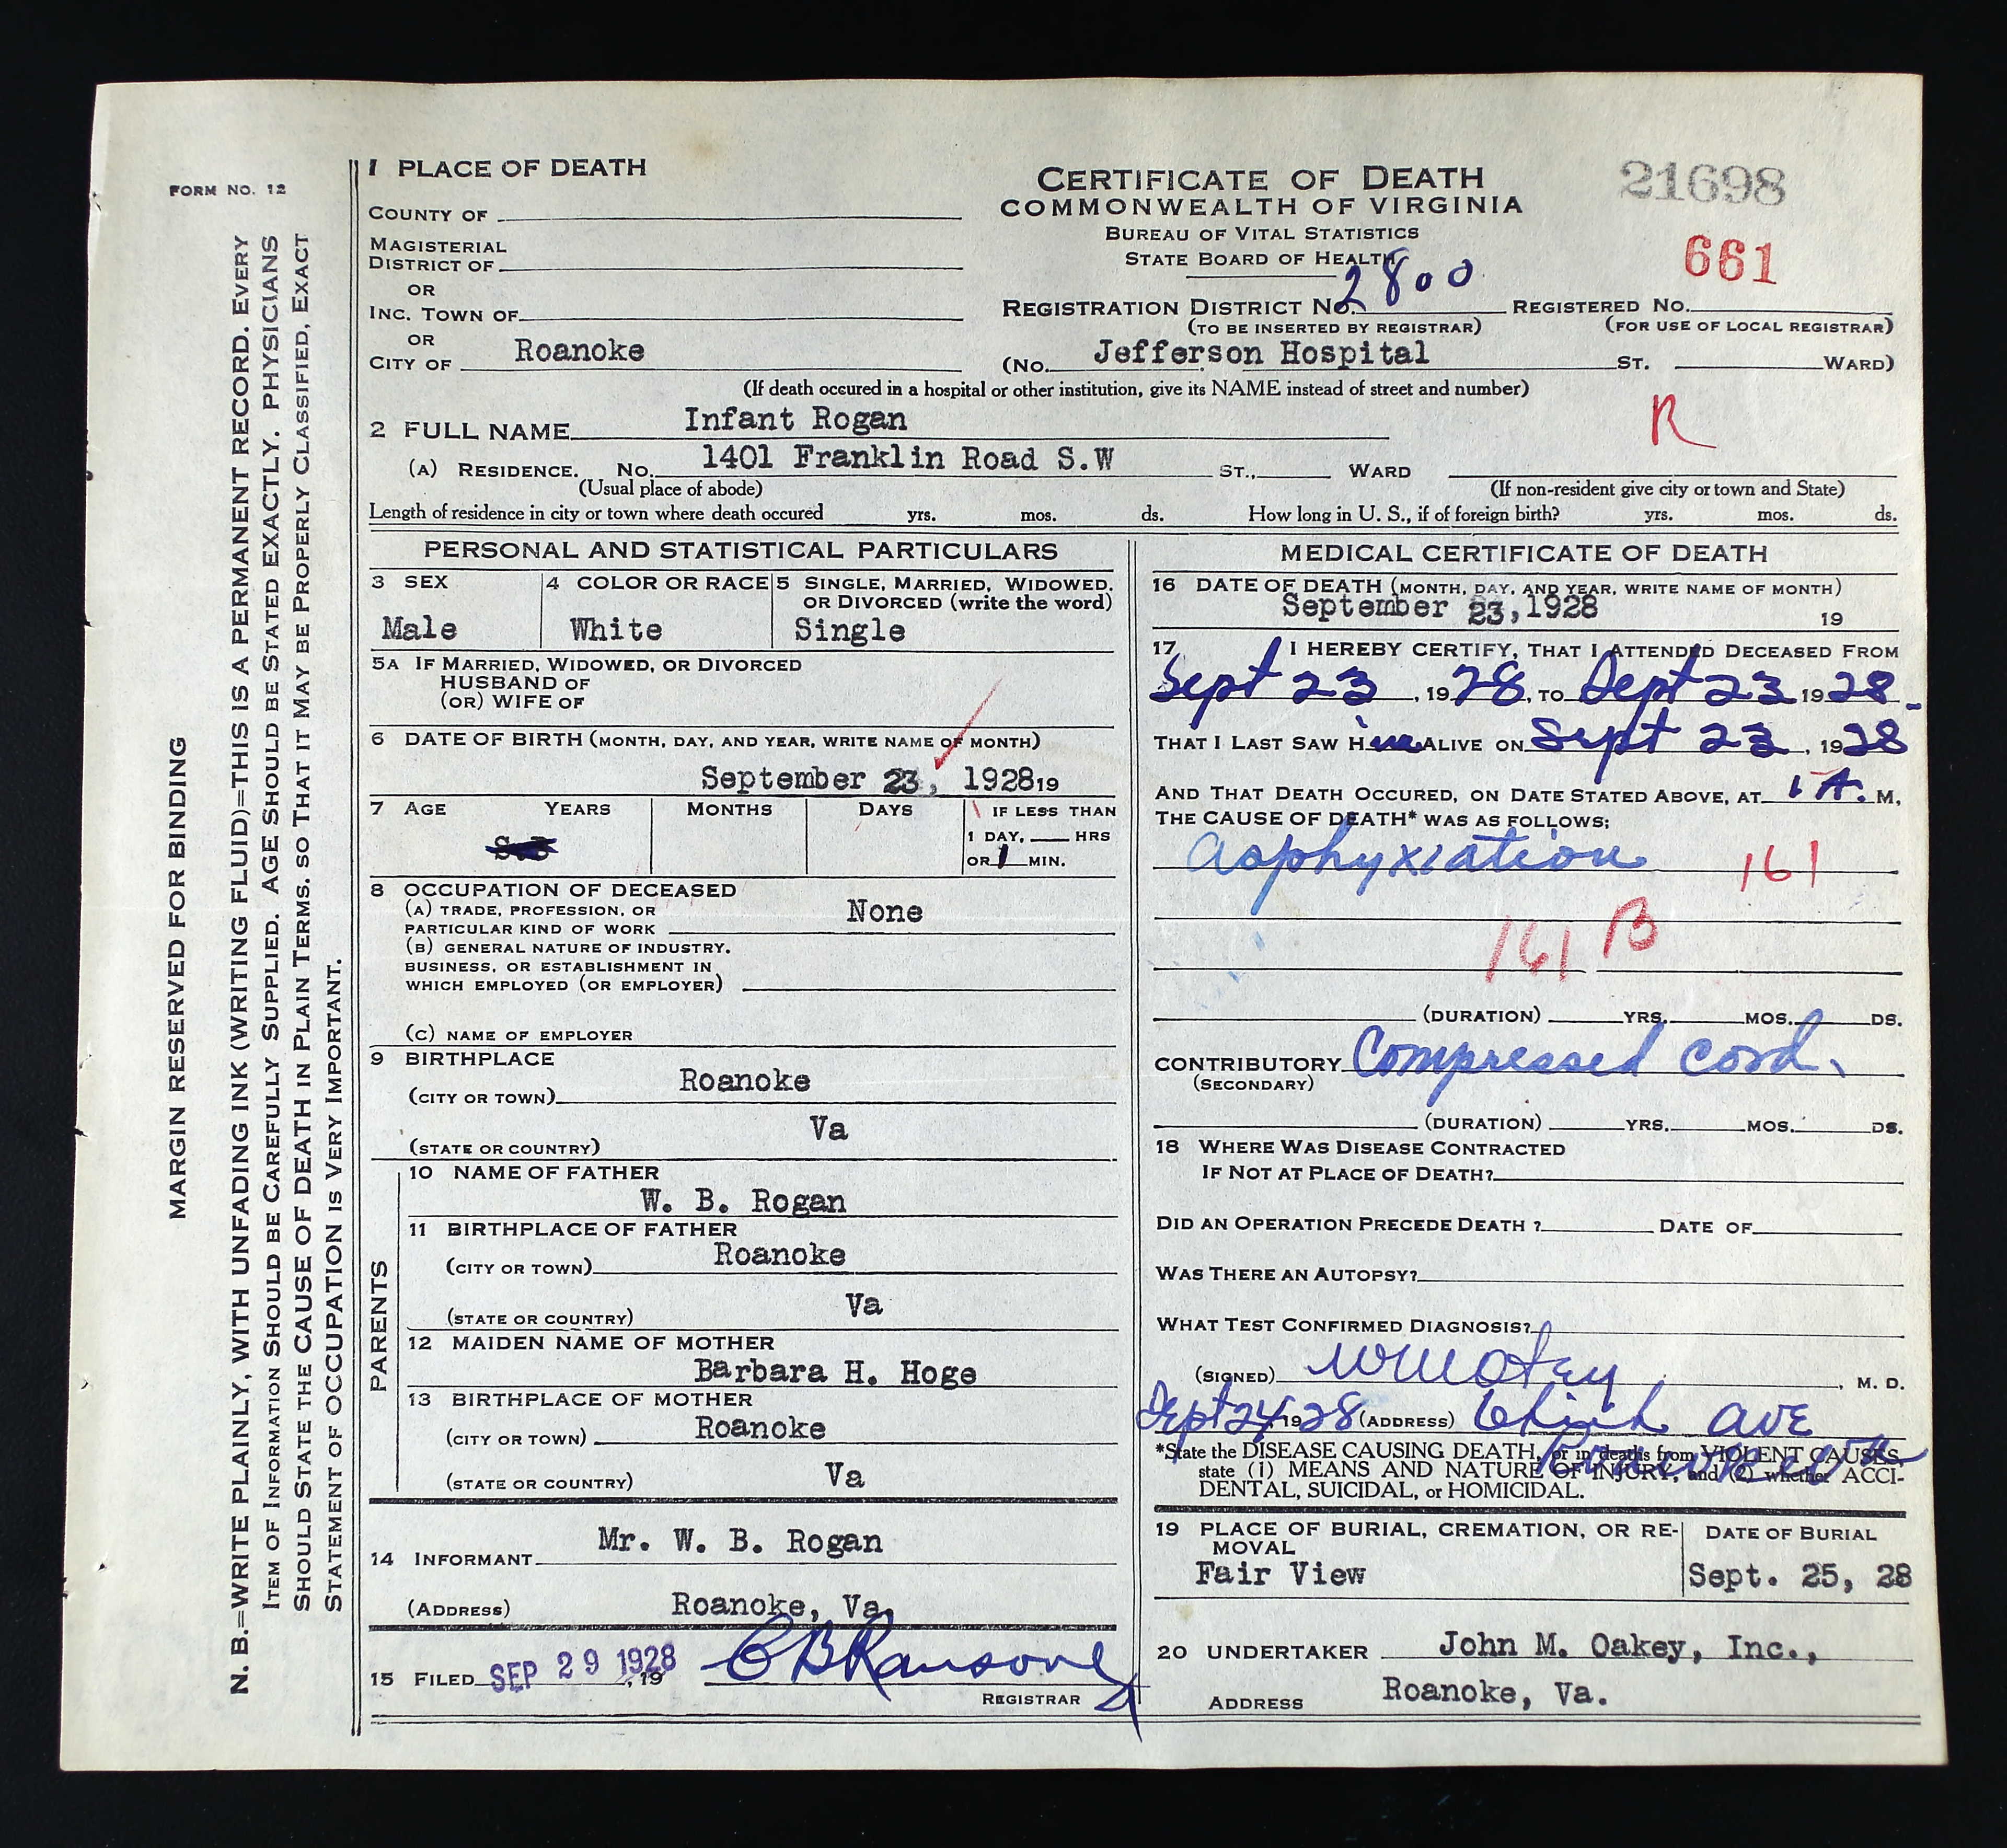 FORM NO. 12
MARGIN RESERVED FOR BINDING
N. B.=WRITE PLAINLY, WITH UNFADING INK (WRITING FLUID)=THIS IS A PERMANENT RECORD. EVERY
ITEM OF INFORMATION SHOULD BE CAREFULLY SUPPLIED. AGE SHOULD BE STATED EXACTLY. PHYSICIANS
SHOULD STATE THE CAUSE OF DEATH IN PLAIN TERMS. SO THAT IT MAY BE PROPERLY CLASSIFIED, EXACT
STATEMENT OF OCCUPATION IS VERY IMPORTANT.
1 PLACE OF DEATH
COUNTY OF
MAGISTERIAL
DISTRICT OF
OR
INC. TOWN OF
OR
CITY OF Roanoke
CERTIFICATE OF DEATH
COMMONWEALTH OF VIRGINIA
BUREAU OF VITAL STATISTICS
STATE BOARD OF HEALTH
21698
661
REGISTRATION DISTRICT NO. 2800 REGISTERED NO.
(TO BE INSERTED BY REGISTRAR) (FOR USE OF LOCAL REGISTRAR)
(NO. Jefferson Hospital ST. WARD)
(If death occured in a hospital or other institution, give its NAME instead of street and number)
2 FULL NAME Infant Rogan
R
(A) RESIDENCE. NO. 1401 Franklin Road S.W ST., WARD
(Usual place of abode) (If non-resident give city or town and State)
Length of residence in city or town where death occured yrs. mos. ds. How long in U. S., if of foreign birth? yrs. mos. ds.
PERSONAL AND STATISTICAL PARTICULARS
3 SEX 4 COLOR OR RACE 5 SINGLE, MARRIED, WIDOWED,
OR DIVORCED (write the word)
Male White Single
5A IF MARRIED, WIDOWED, OR DIVORCED
HUSBAND OF
(OR) WIFE OF
6 DATE OF BIRTH (MONTH, DAY, AND YEAR, WRITE NAME OF MONTH)
September 23, 1928 19
7 AGE YEARS MONTHS DAYS IF LESS THAN
1 DAY, HRS
OR 1 MIN.
8 OCCUPATION OF DECEASED
(A) TRADE, PROFESSION, OR
PARTICULAR KIND OF WORK None
(B) GENERAL NATURE OF INDUSTRY.
BUSINESS, OR ESTABLISHMENT IN
WHICH EMPLOYED (OR EMPLOYER)
(C) NAME OF EMPLOYER
9 BIRTHPLACE
(CITY OR TOWN) Roanoke
(STATE OR COUNTRY) Va
PARENTS
10 NAME OF FATHER
W. B. Rogan
11 BIRTHPLACE OF FATHER
(CITY OR TOWN) Roanoke
(STATE OR COUNTRY) Va
12 MAIDEN NAME OF MOTHER
Barbara H. Hoge
13 BIRTHPLACE OF MOTHER
(CITY OR TOWN) Roanoke
(STATE OR COUNTRY) Va
14 INFORMANT Mr. W. B. Rogan
(ADDRESS) Roanoke, Va.
15 FILED SEP 29 1928, 19 C B Ransone
REGISTRAR
MEDICAL CERTIFICATE OF DEATH
16 DATE OF DEATH (MONTH, DAY, AND YEAR, WRITE NAME OF MONTH)
September 23, 1928 19
17 I HEREBY CERTIFY, THAT I ATTENDED DECEASED FROM
Sept 23, 1928, TO Sept 23 1928
THAT I LAST SAW H im ALIVE ON Sept 23, 1928
AND THAT DEATH OCCURED, ON DATE STATED ABOVE, AT 1 A. M.
THE CAUSE OF DEATH* WAS AS FOLLOWS:
Asphyxiation 161
161 B
(DURATION) YRS. MOS. DS.
CONTRIBUTORY Compressed cord.
(SECONDARY)
(DURATION) YRS. MOS. DS.
18 WHERE WAS DISEASE CONTRACTED
IF NOT AT PLACE OF DEATH?
DID AN OPERATION PRECEDE DEATH ? DATE OF
WAS THERE AN AUTOPSY?
WHAT TEST CONFIRMED DIAGNOSIS?
(SIGNED) W W Otey, M. D.
Sept 24, 1928 (ADDRESS) Ave
Roanoke Va
*State the DISEASE CAUSING DEATH, or in deaths from VIOLENT CAUSES,
state (1) MEANS AND NATURE OF INJURY, and (2) whether ACCI-
DENTAL, SUICIDAL, or HOMICIDAL.
19 PLACE OF BURIAL, CREMATION, OR RE- DATE OF BURIAL
MOVAL
Fair View Sept. 25, 28
20 UNDERTAKER John M. Oakey, Inc.,
ADDRESS Roanoke, Va.